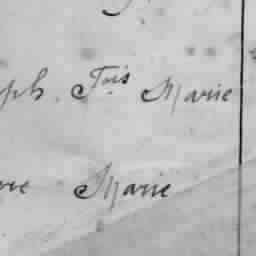 ph. Fois Marie
re Marie